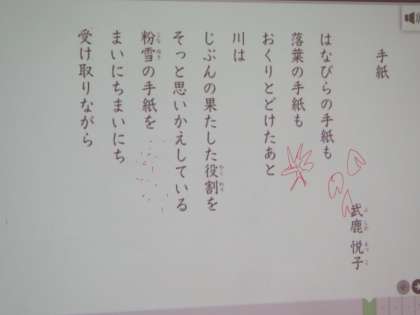 手紙
武鹿 悦子
はなびらの手紙も
落葉の手紙も
おくりとどけたあと
川は
じぶんの果たした役割を
そっと思いかえしている
粉雪の手紙を
まいにちまいにち
受け取りながら